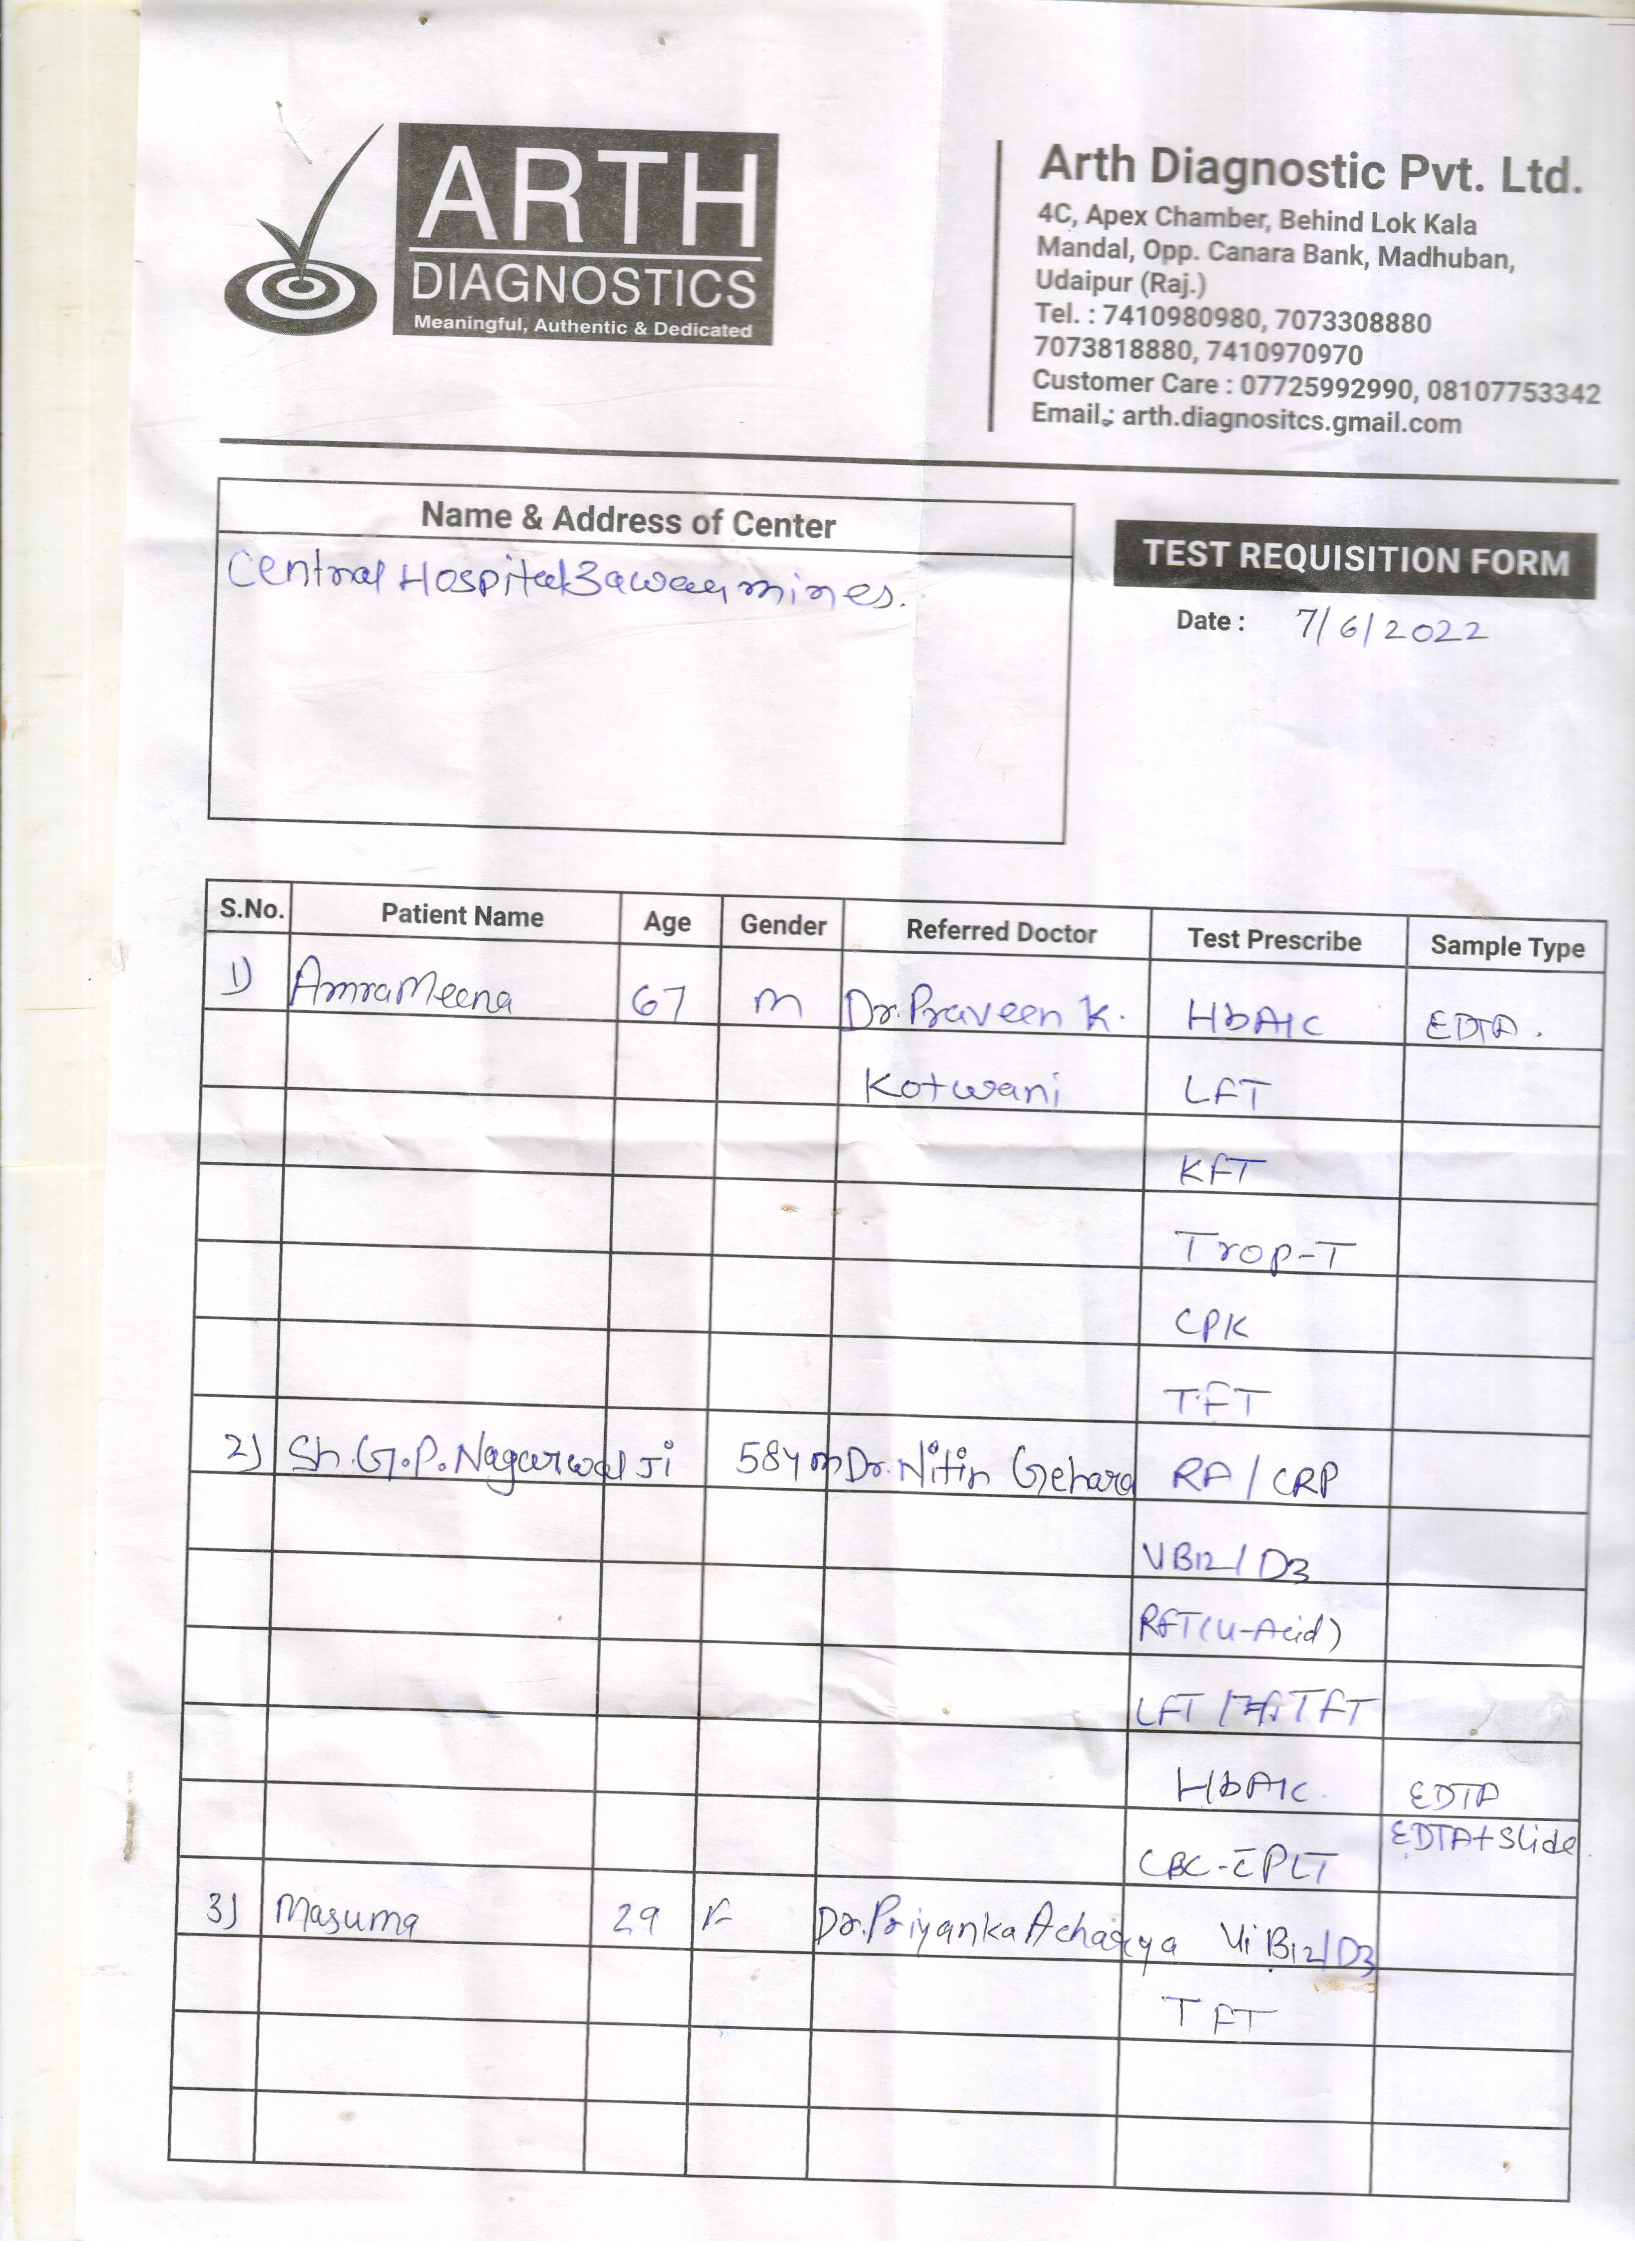 ARTH
DIAGNOSTICS
Meaningful, Authentic & Dedicated
Arth Diagnostic Pvt. Ltd.
4C, Apex Chamber, Behind Lok Kala
Mandal, Opp. Canara Bank, Madhuban,
Udaipur (Raj.)
Tel. : 7410980980, 7073308880
7073818880, 7410970970
Customer Care : 07725992990, 08107753342
Email.: arth.diagnositcs.gmail.com
Name & Address of Center
Central Hospital Zawar mines.
TEST REQUISITION FORM
Date : 7/6/2022
S.No. Patient Name Age Gender Referred Doctor Test Prescribe Sample Type
1) Amra Meena 67 M Dr. Praveen K. HbA1C EDTA.
Kotwani LFT
KFT
Trop-T
CPK
TFT
2) Sh. G.P. Nagarwal Ji 58y m Dr. Nitin Gehara RA / CRP
VB12 / D3
RFT (U-Acid)
LFT / TFT
HbA1c. EDTA
CBC-c̄ PLT EDTA+Slide
3) Masuma 29 F Dr. Priyanka Acharya Vi B12/D3
TFT